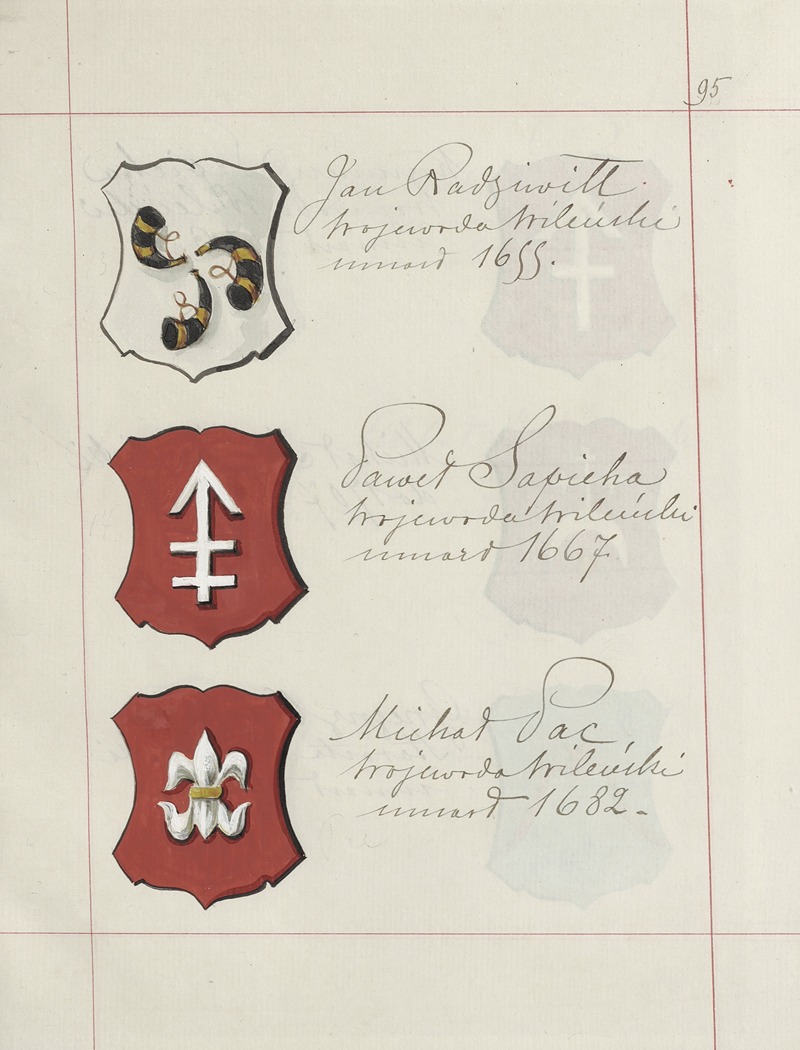 95
Jan Radziwiłł
wojewoda wileński
umarł 1655.
Paweł Sapieha
wojewoda wileński
umarł 1667
Michał Pac
wojewoda wileński
umarł 1682.